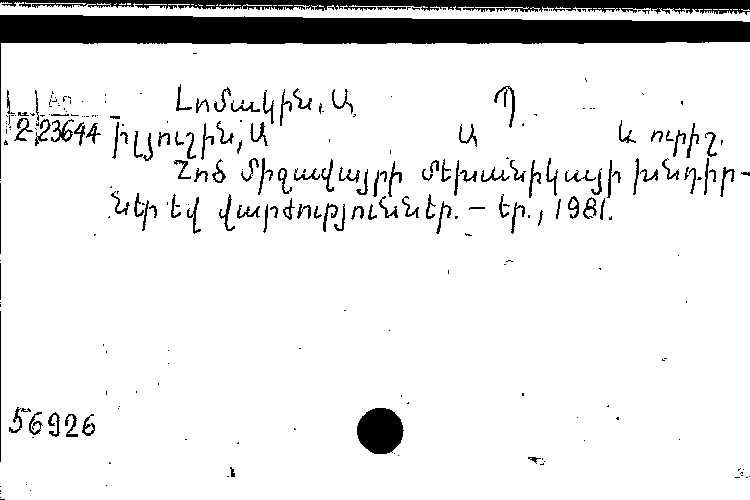 Ար
Լոմակին, Ա Պ.
2 23644 Իլյուշին, Ա Ա և ուրիշ.
Հոծ միջավայրի մեխանիկայի խնդիր-
ներ եվ վարժություններ. — Եր., 1981.
56926